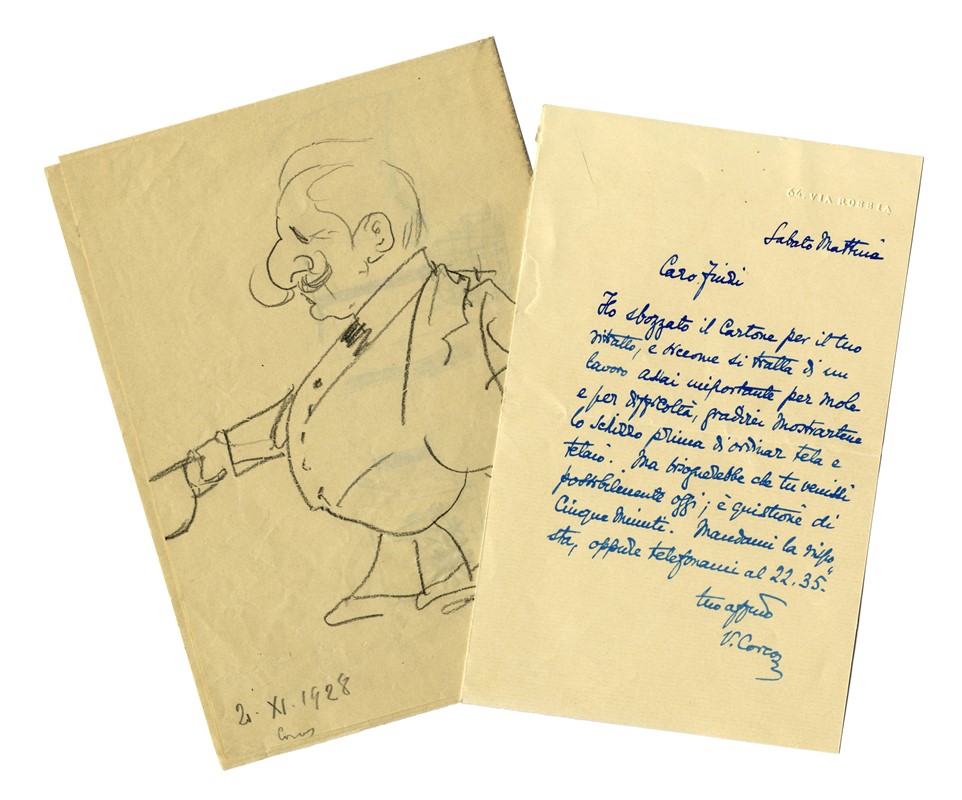 2. XI. 1928
64. VIA ROBBIA
Sabato Mattina
Caro
Ho sbozzato il Cartone per il tuo
ritratto, e siccome si tratta di un
lavoro assai importante per mole
e per difficoltà, gradirei mostrartene
lo schizzo prima di ordinar tela e
telaio. Ma bisognerebbe che tu venissi
possibilmente oggi; è quistione di
Cinque Minuti. Mandami la rispo
sta, oppure telefonami al 22.35.
tuo affmo
V. Corcos